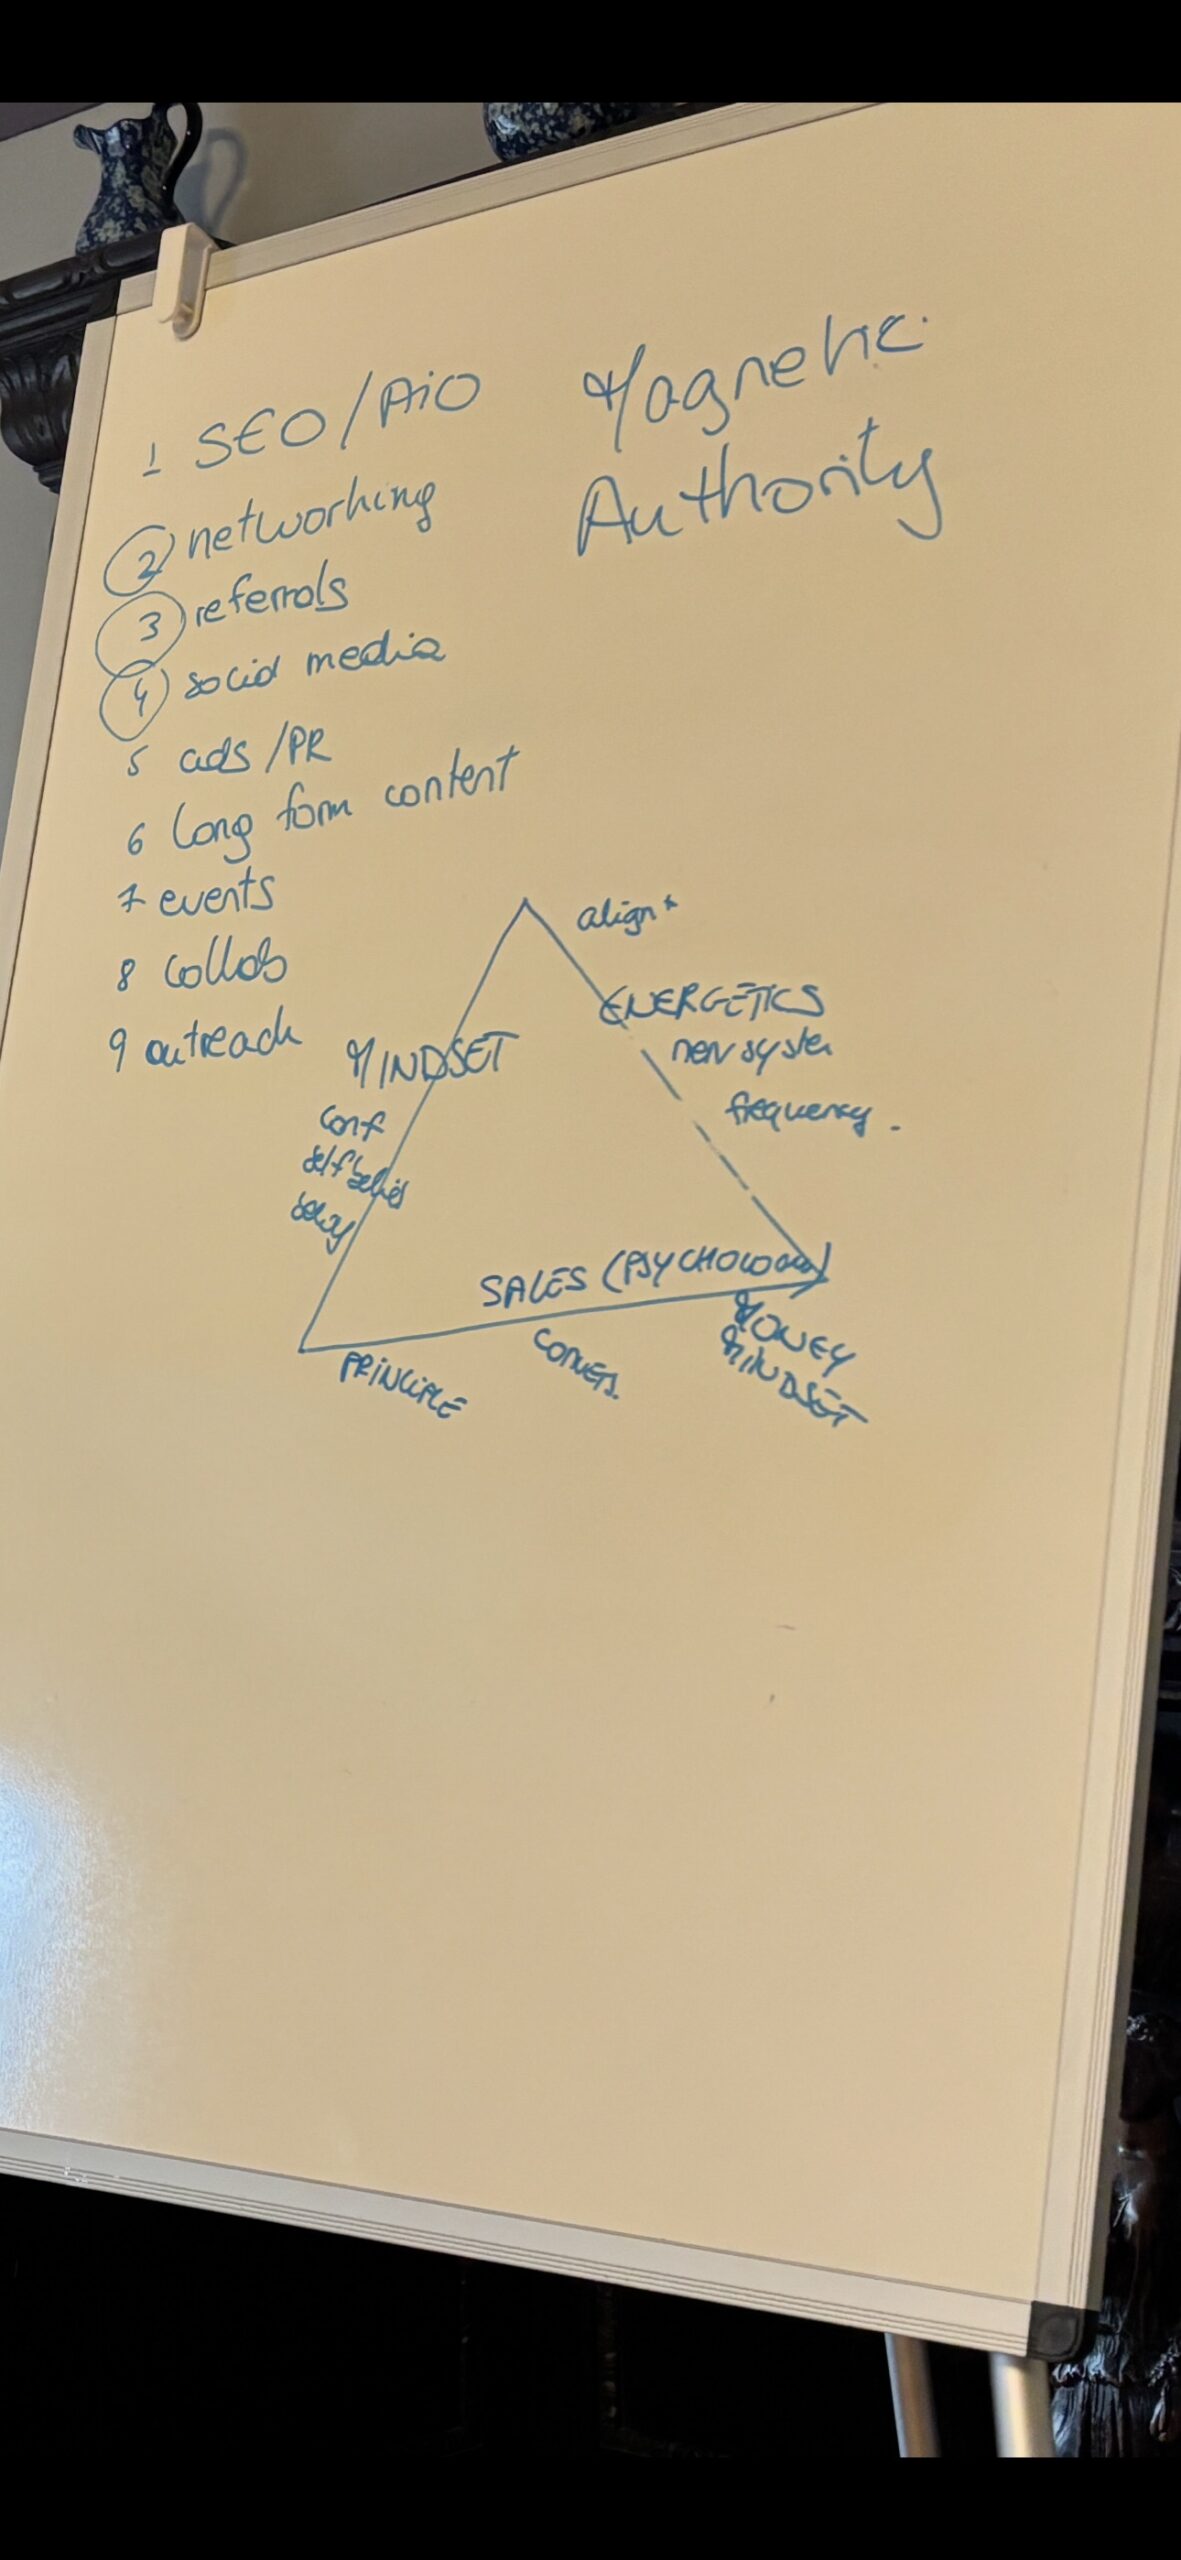 Magnetic
Authority
1 SEO/AiO
2 networking
3 referrals
4 social media
5 ads/PR
6 long form content
7 events
8 collab
9 outreach
align
ENERGETICS
nerv syster
frequency.
MINDSET
conf
self belief
SALES (PSYCHOLOGY)
PRINCIPLE
CONVERS.
MONEY
MINDSET